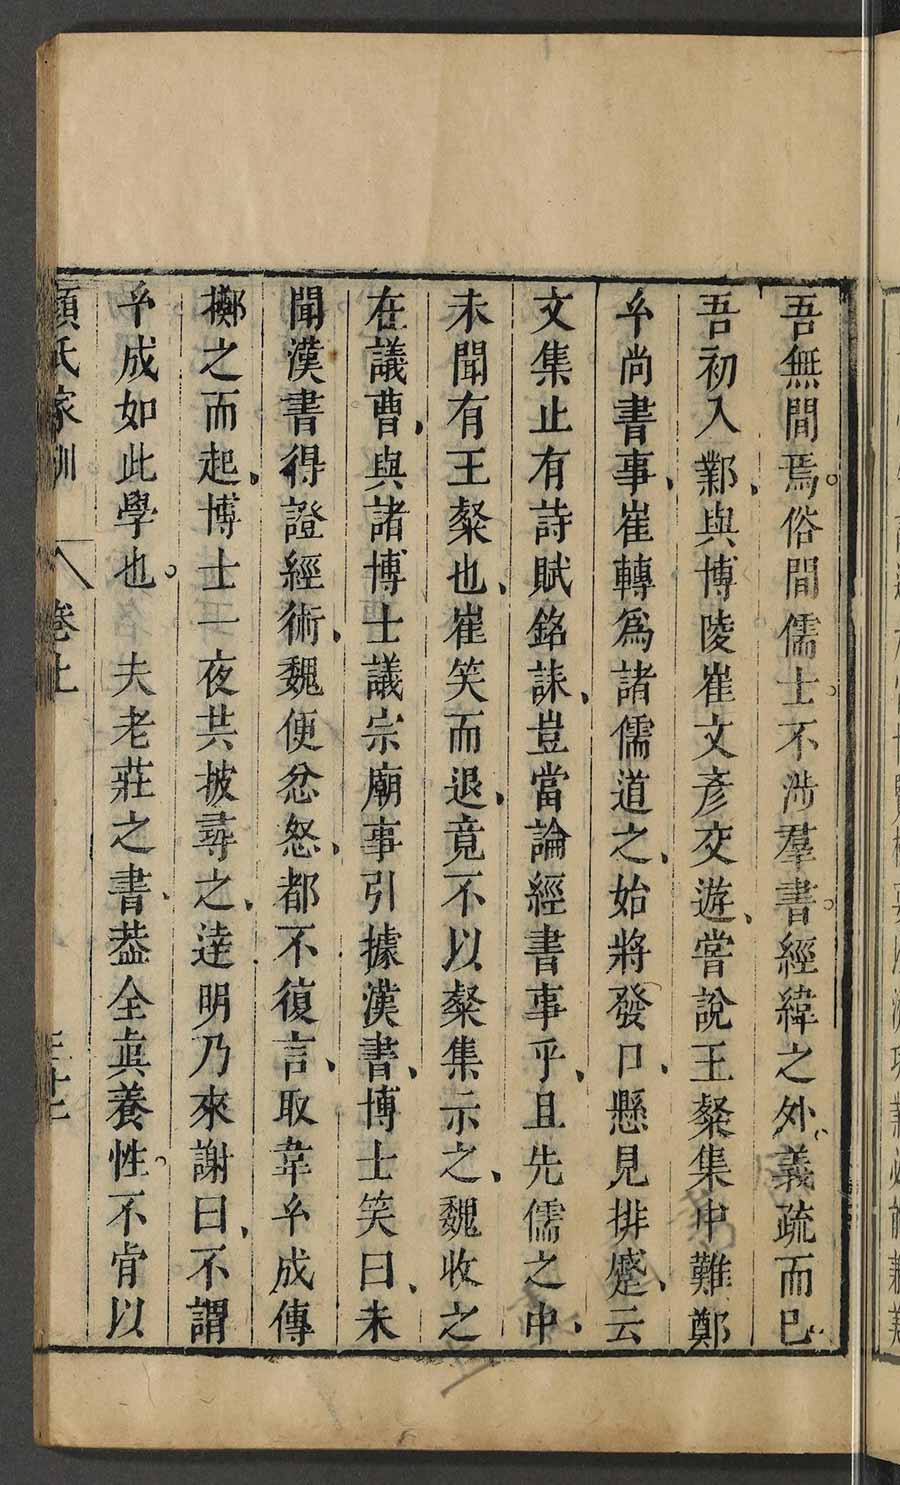 吾無間焉俗間儒士不涉羣書經緯之外義疏而已
吾初入鄴與博陵崔文彥交遊嘗說王粲集中難鄭
𤣥尚書事崔轉爲諸儒道之始將發口懸見排蹙云
文集止有詩賦銘誄豈當論經書事乎且先儒之中
未聞有王粲也崔笑而退竟不以粲集示之魏收之
在議曹與諸博士議宗廟事引據漢書博士笑曰未
聞漢書得證經術魏便忿怒都不復言取韋𤣥成傳
擲之而起博士一夜共披尋之達明乃來謝曰不謂
𤣥成如此學也　夫老莊之書葢全眞養性不肯以
顏氏家訓　卷上